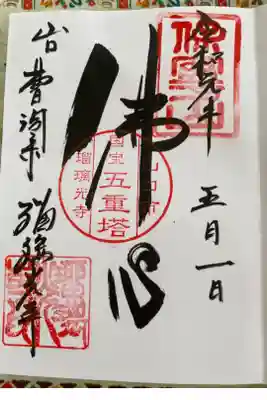 令和元年
五月一日
佛心
山口市
国宝 五重塔
瑠璃光寺
曹洞宗 瑠璃光寺